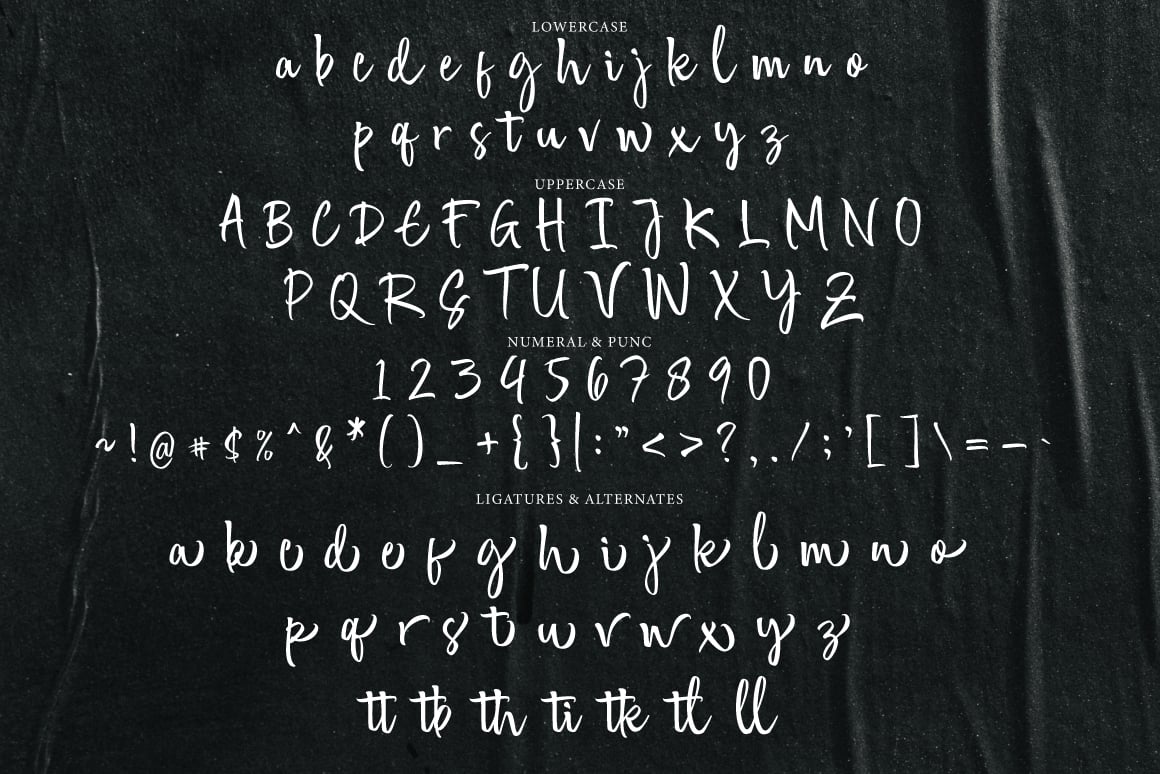 LOWERCASE
a b c d e f g h i j k l m n o
p q r s t u v w x y z
UPPERCASE
A B C D E F G H I J K L M N O
P Q R S T U V W X Y Z
NUMERAL & PUNC
1 2 3 4 5 6 7 8 9 0
~ ! @ # $ % ^ & * ( ) _ + { } | : " < > ? , . / ; ' [ ] \ = - `
LIGATURES & ALTERNATES
a b c d e f g h i j k l m n o
p q r s t u v w x y z
tt tb th ti tk tl ll